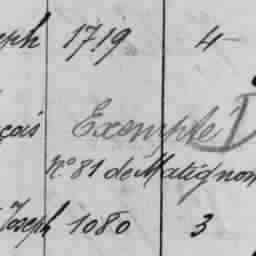 eph 1719 4
çois Exempté
N° 81 de Matignon
Joseph 1080 3